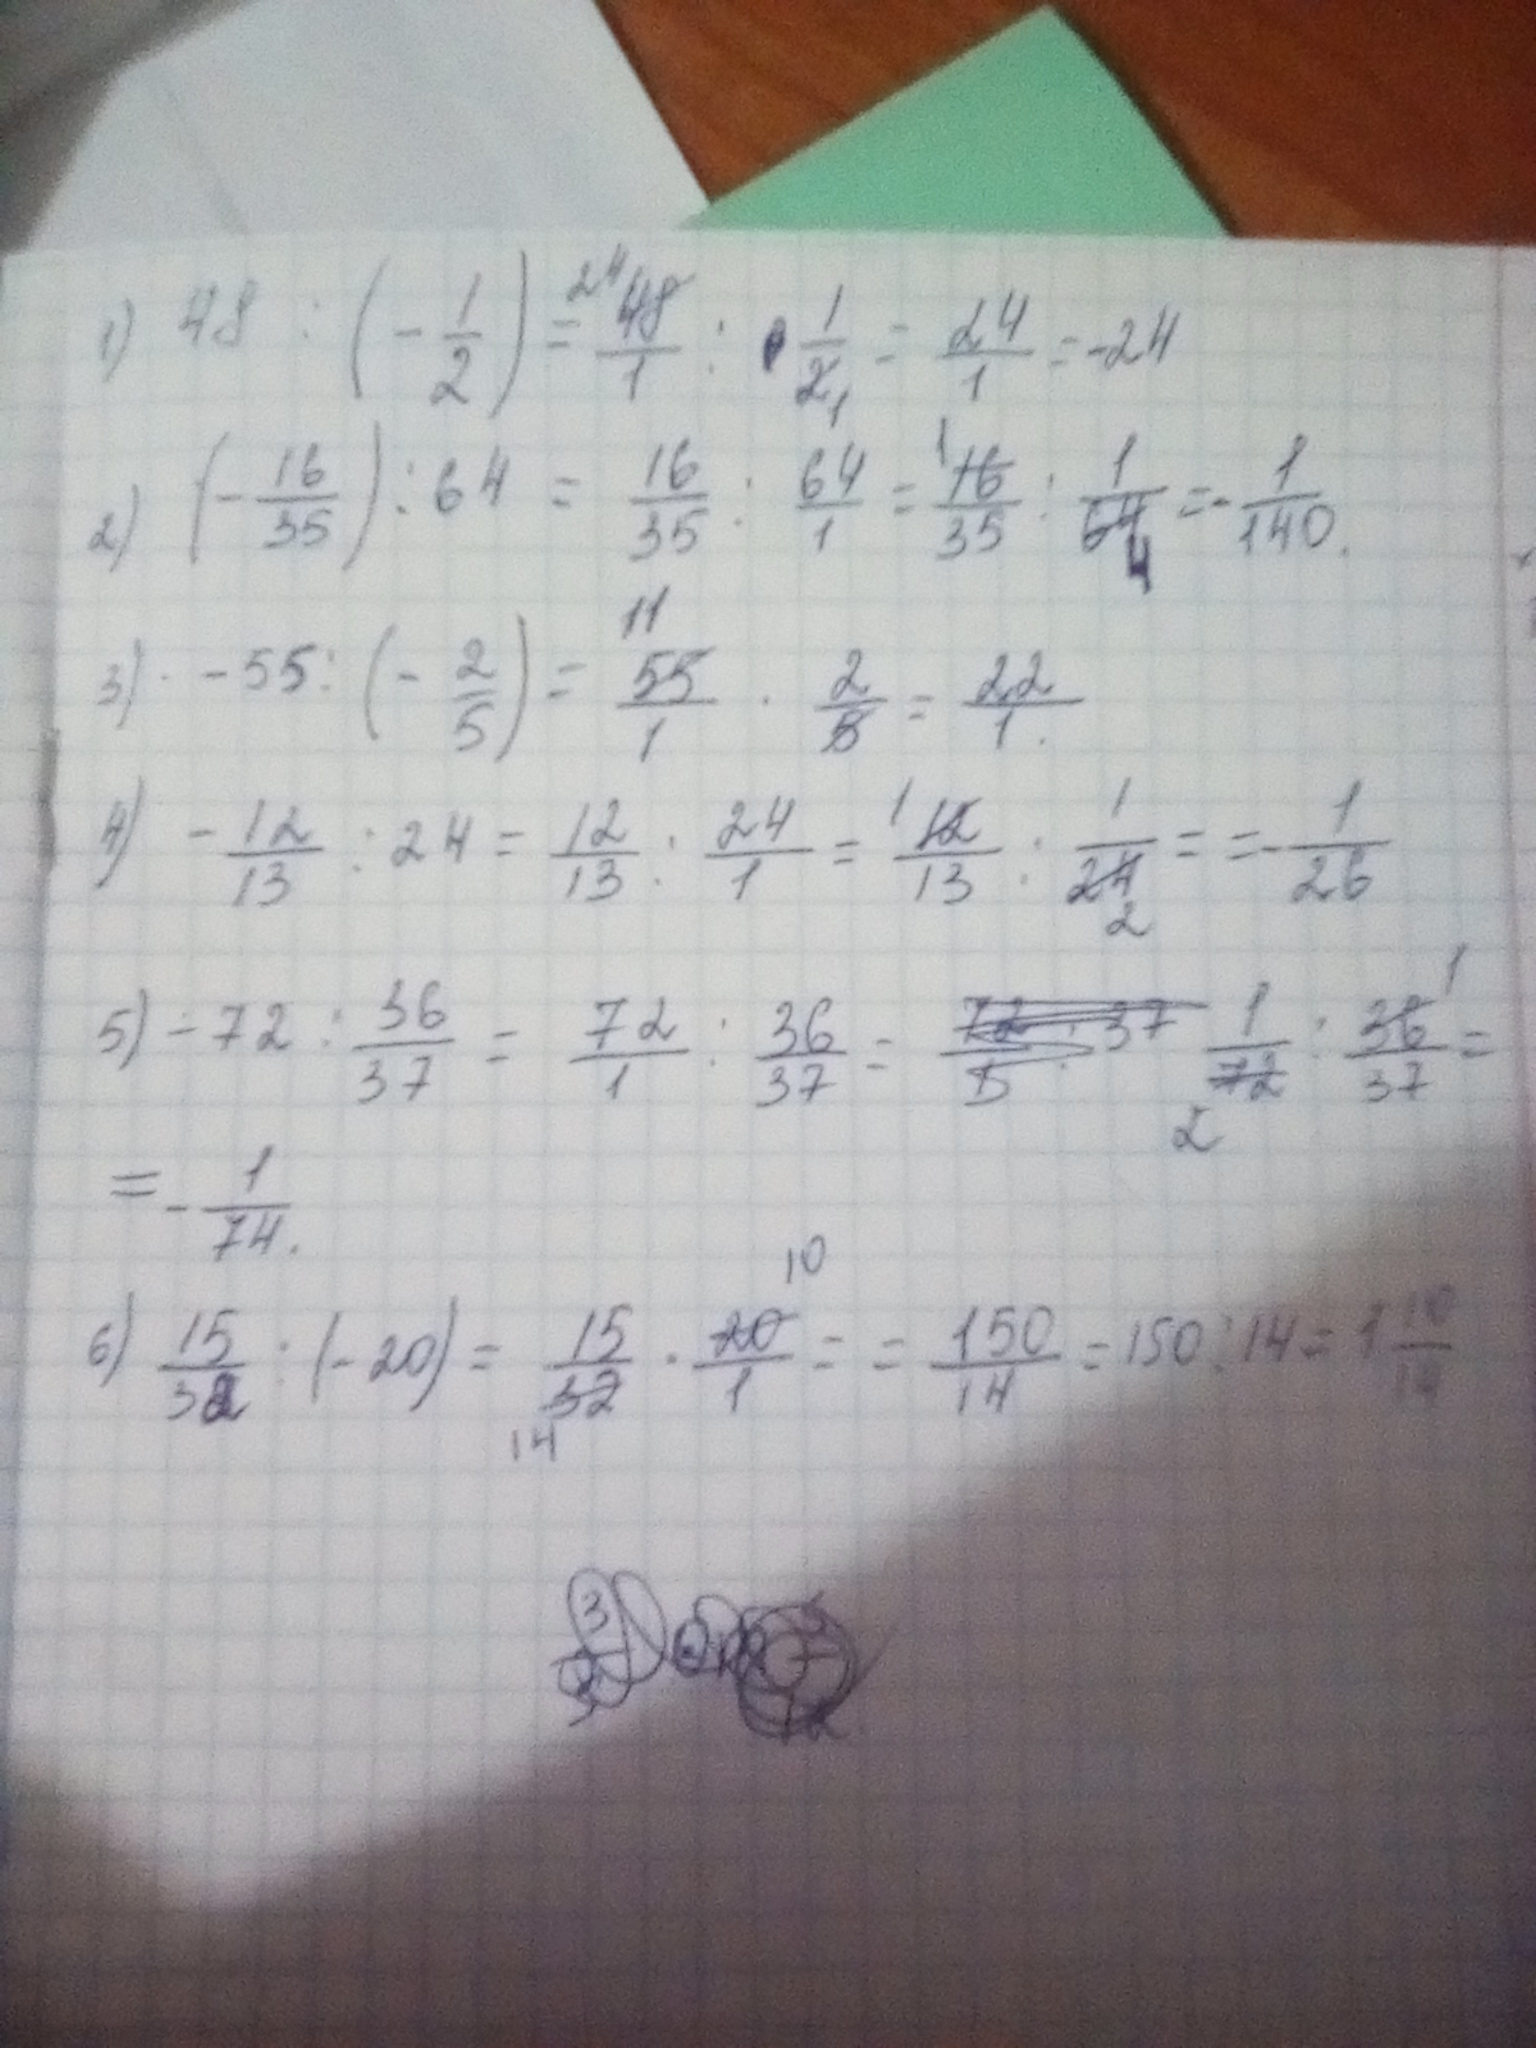 1) 48 : (- 1/2) = 24 48/1 : 1/2 1 = 24/1 = -24
2) (- 16/35) : 64 = 16/35 : 64/1 = 1 16/35 : 1/64 4 = - 1/140.
3) -55 : (- 2/5) = 11 55/1 · 2/5 = 22/1.
4) - 12/13 : 24 = 12/13 : 24/1 = 1 12/13 : 1/24 2 = = - 1/26
5) - 72 : 36/37 = 72/1 : 36/37 = 1/72 2 : 36/37 1 =
= - 1/74.
6) 15/32 : (-20) = 15/32 14 · 20/1 10 = = 150/14 = 150 : 14 = 1 10/14